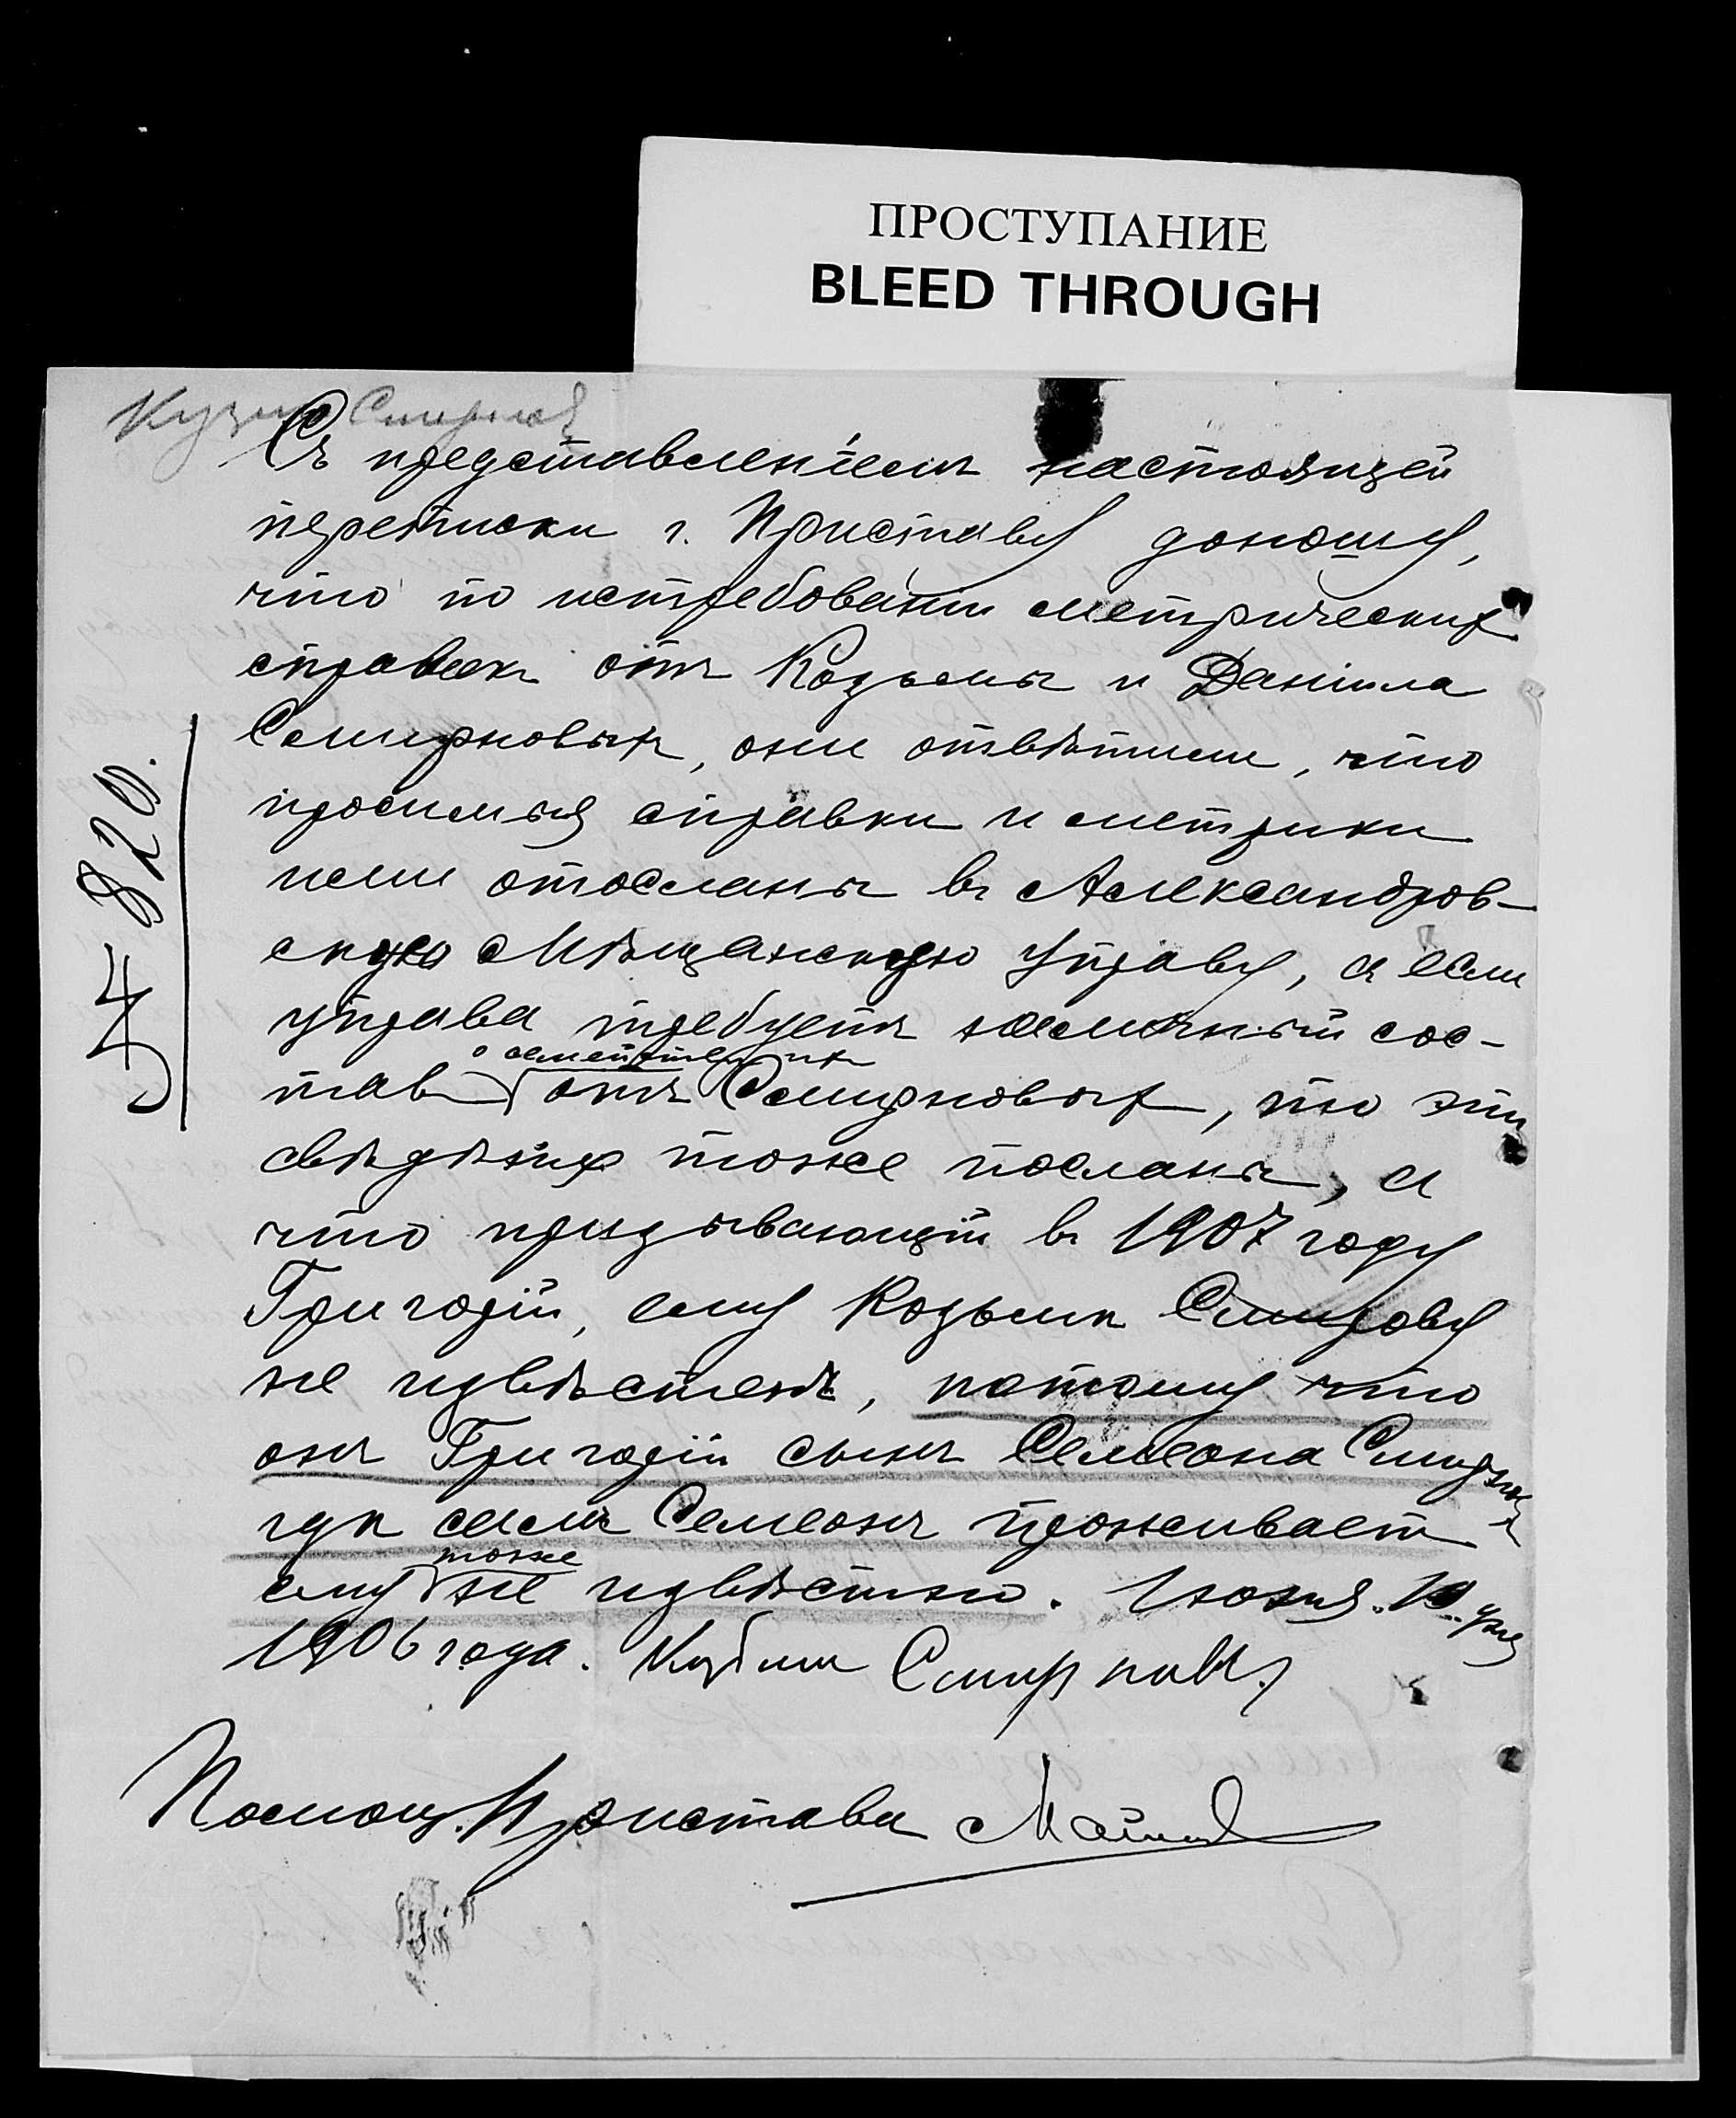 ПРОСТУПАНИЕ
BLEED THROUGH
Кузма Смирнов
Съ представленіемъ настоящей
переписки г. Приставу доношу,
что по истребованіи метрическихъ
справокъ отъ Козьмы и Даніила
Смирновыхъ, они отвѣтили, что
просимыя справки и метрики
ими отосланы въ Александров-
скую Мѣщанскую Управу, а если
управа требуетъ наличный сос-
тавъ отъ Смирновыхъ, то эти
о семействѣ ихъ
свѣдѣнія тоже посланы, а
что призывающій въ 1907 году
Григорій, ему Козьмѣ Смирнову
не извѣстенъ, потому что
онъ Григорій сынъ Семеона Смирнова
гдѣ самъ Семеонъ проживаетъ
ему тоже не извѣстно. Іюня
1906 года. Кузма Смирновъ
Помощ. Пристава
№ 820.